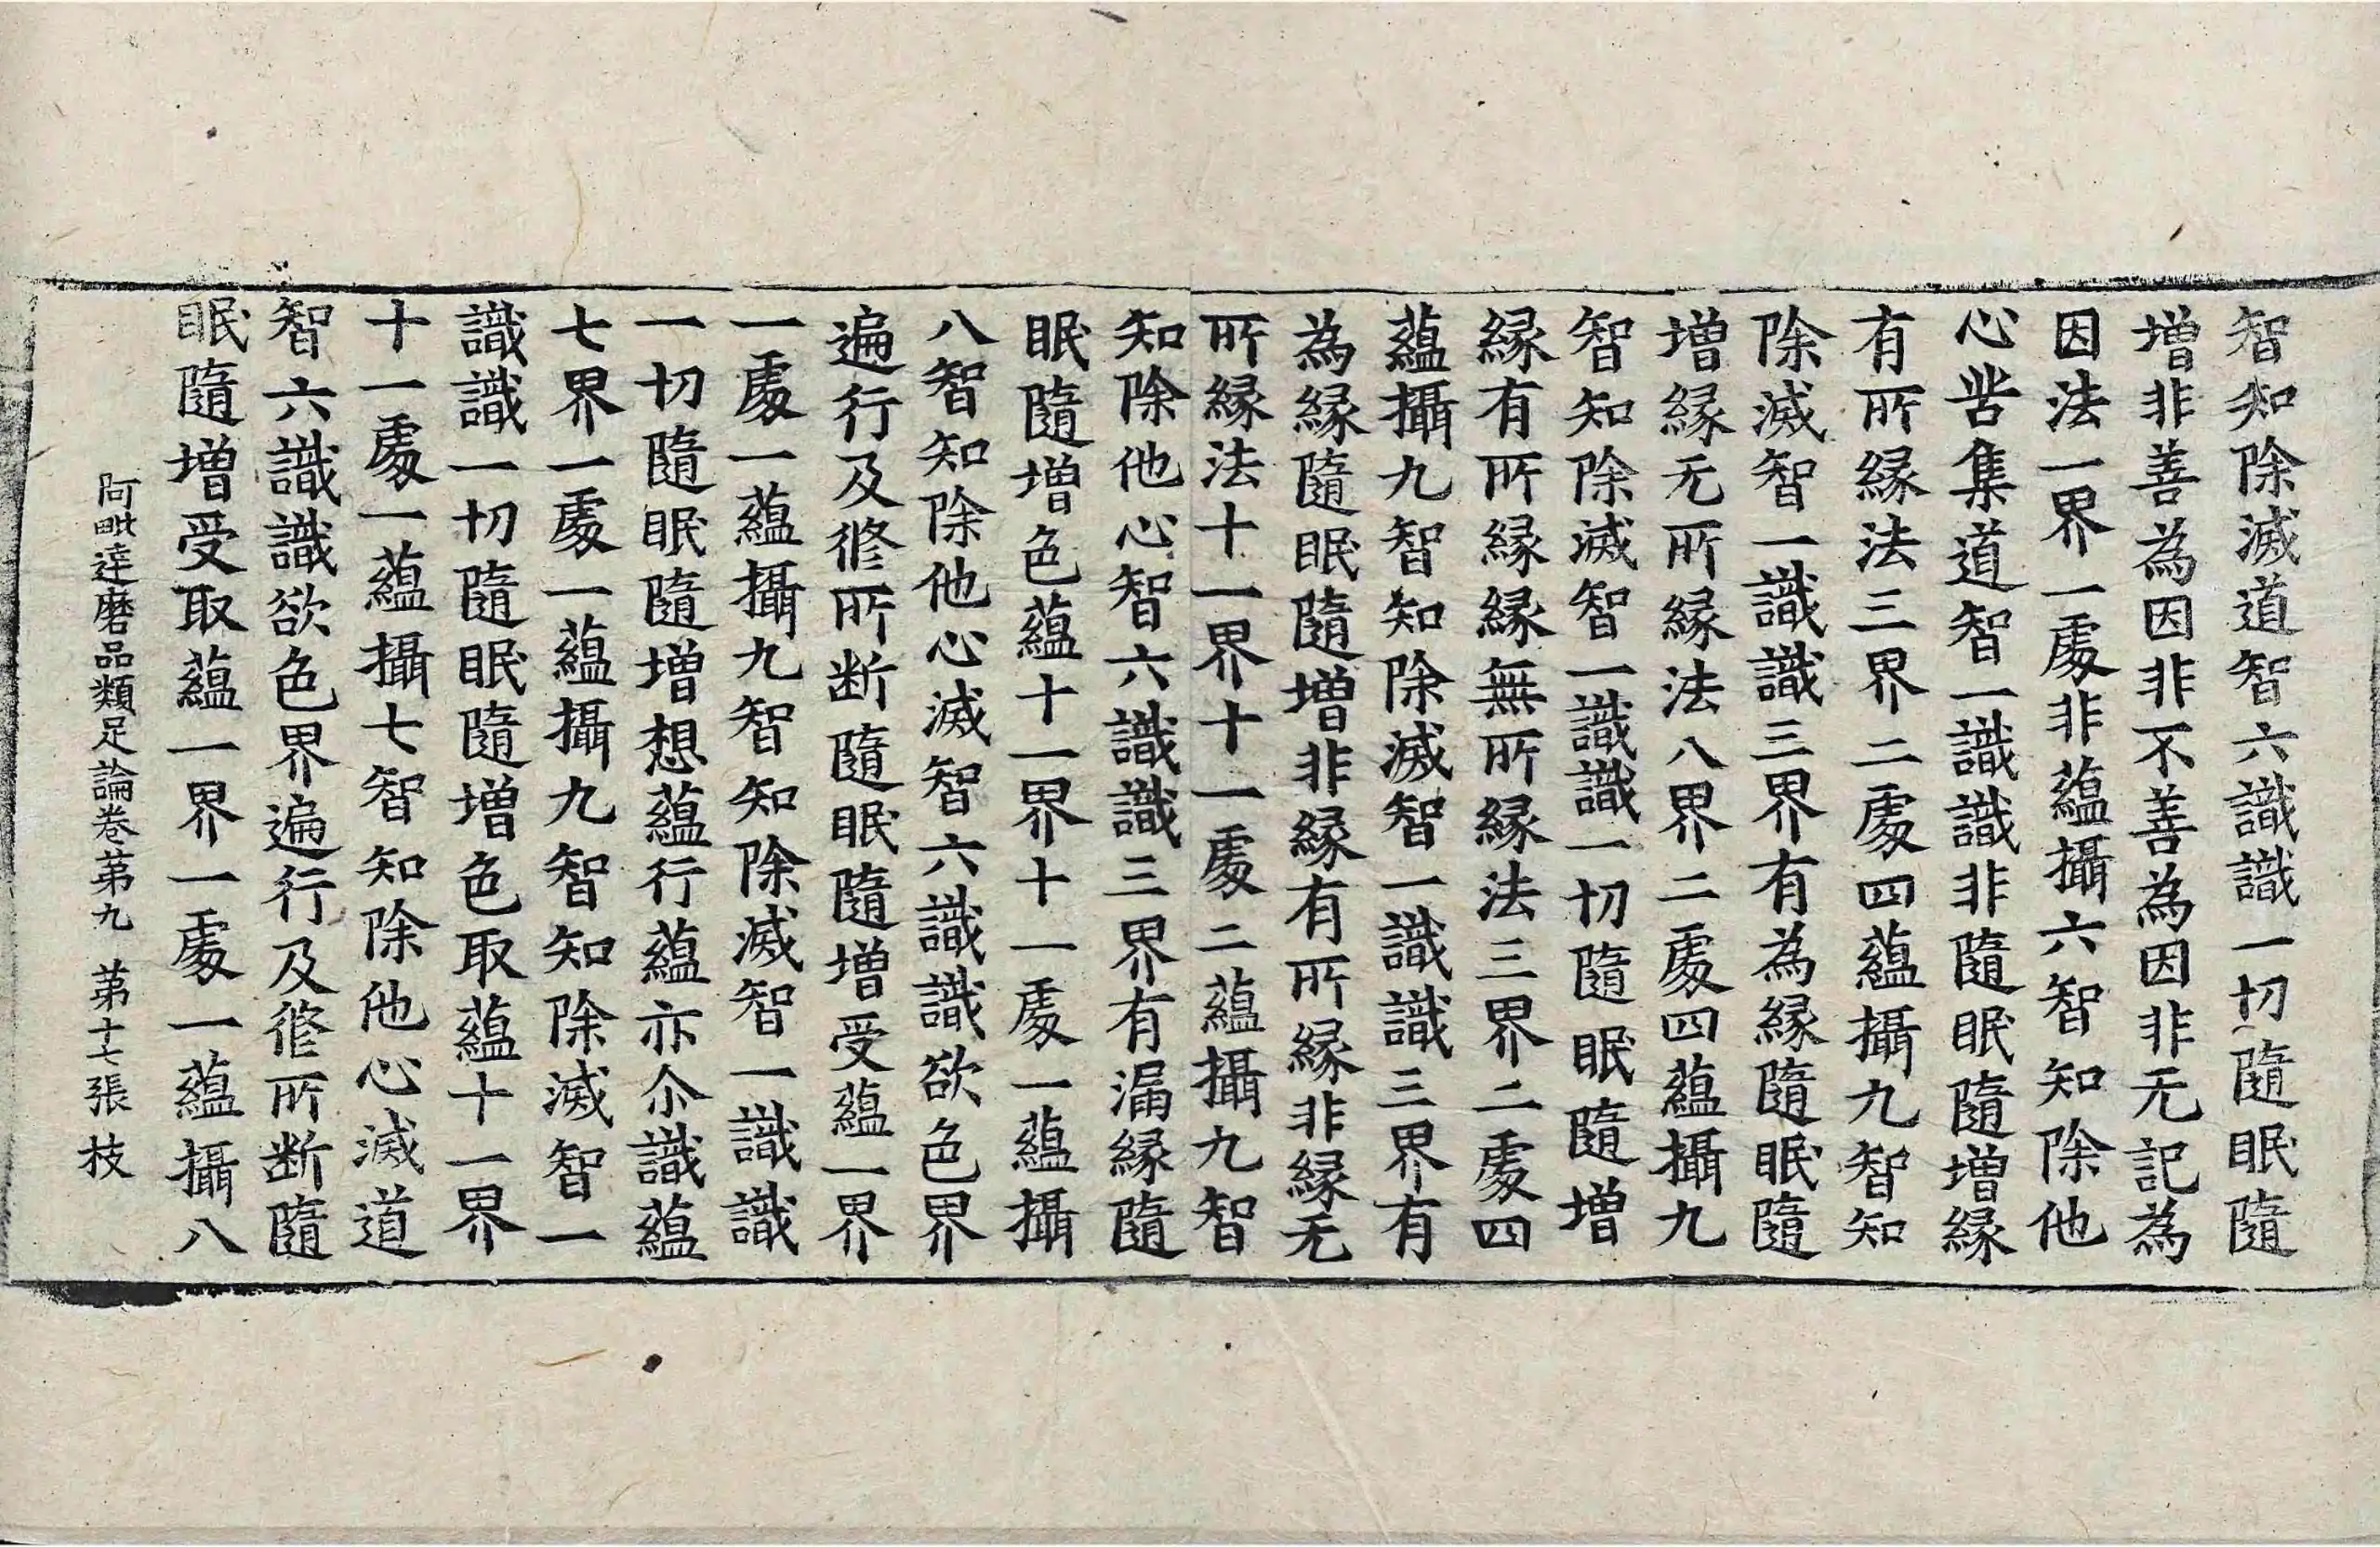 智知除滅道智六識識一切隨眠隨
增非善為因非不善為因非无記為
因法一界一處非蘊攝六智知除他
心苦集道智一識識非隨眠隨增緣
有所緣法三界二處四蘊攝九智知
除滅智一識識三界有為緣隨眠隨
增緣无所緣法八界二處四蘊攝九
智知除滅智一識識一切隨眠隨增
緣有所緣緣無所緣法三界二處四
蘊攝九智知除滅智一識識三界有
為緣隨眠隨增非緣有所緣非緣无
所緣法十一界十一處二蘊攝九智
知除他心智六識識三界有漏緣隨
眠隨增色蘊十一界十一處一蘊攝
八智知除他心滅智六識識欲色界
遍行及修所斷隨眠隨增受蘊一界
一處一蘊攝九智知除滅智一識識
一切隨眠隨增想蘊行蘊亦尒識蘊
七界一處一蘊攝九智知除滅智一
識識一切隨眠隨增色取蘊十一界
十一處一蘊攝七智知除他心滅道
智六識識欲色界遍行及修所斷隨
眠隨增受取蘊一界一處一蘊攝八
阿毗達磨品類足論卷第九 第十七張 枝